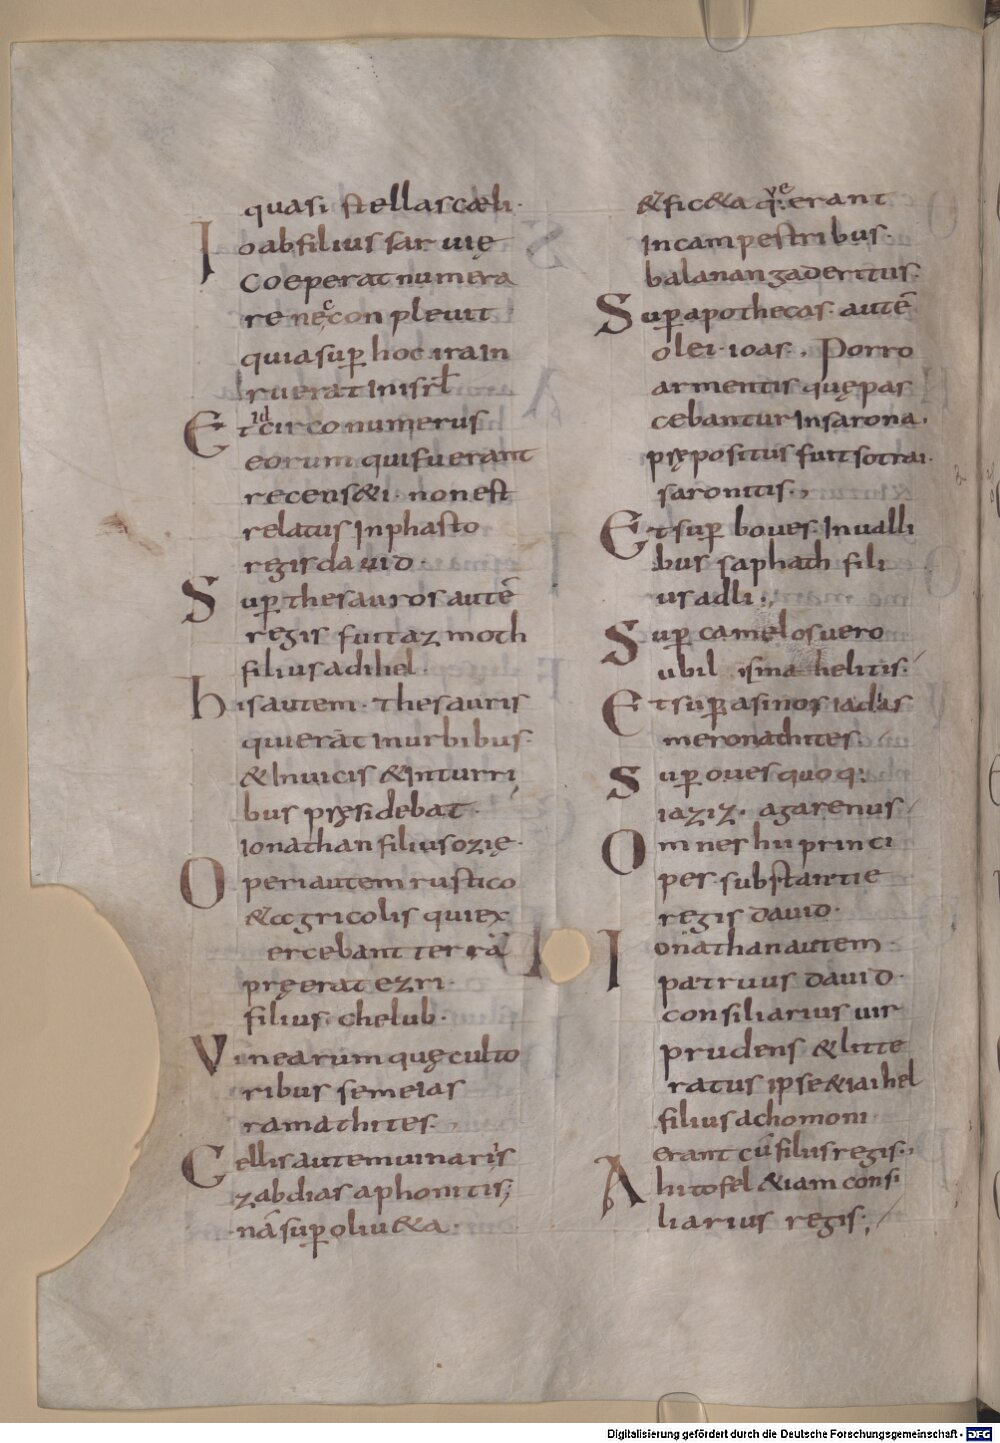 quasi stellas cæli·
Ioab filius saruię
coeperat numera
re nęc conpleuit
quia sup̱ hoc ira in
ruerat in isrł
Et id circo numerus
eorum qui fuerant
recens&i· non est
relatus in phasto
regis dauid·
Sup̱ thesauros autē
regis fuit azmoth
filius adihel·
his autem· thesauris
qui erāt in urbibus·
& In uicis & In turri
bus pręsidebat·
ionathan filius ozię·
Operi autem rustico
& agricolis qui ex
ercebant terrā
pręerat ezri·
filius· chelub·
Vinearum quę culto
ribus semeias
ramathites·
Cellis autem uinariis
zabdias aphonitis;
nā sup̱ oliu&a·
& fic&a q·ue erant
in campestribus·
balanan gaderitus·
Sup̱ apothecas· autē
olei· ioas·, Porro
armentis quę pas
cebantur In sarona·
prępositus fuit sotrai·
saronitis·,
Et sup̱ boues· In ualli
bus saphath fili
us adli·,
Sup̱ camelos uero
ubil ismahelitis·
Et sup̱ asinos iadias
meronathites·
Sup̱ oues quoq;
iaziz· agarenus
Omnes hii princi
pes· substantie
regis dauid·
Ionathan autem·
patruus dauid·
consiliarius uir
prudens & litte
ratus ipse & iaihel
filius achomoni
erant cū filiis regis·,
Ahitofel & iam consi
liarius regis·;
Digitalisierung gefördert durch die Deutsche Forschungsgemeinschaft - DFG